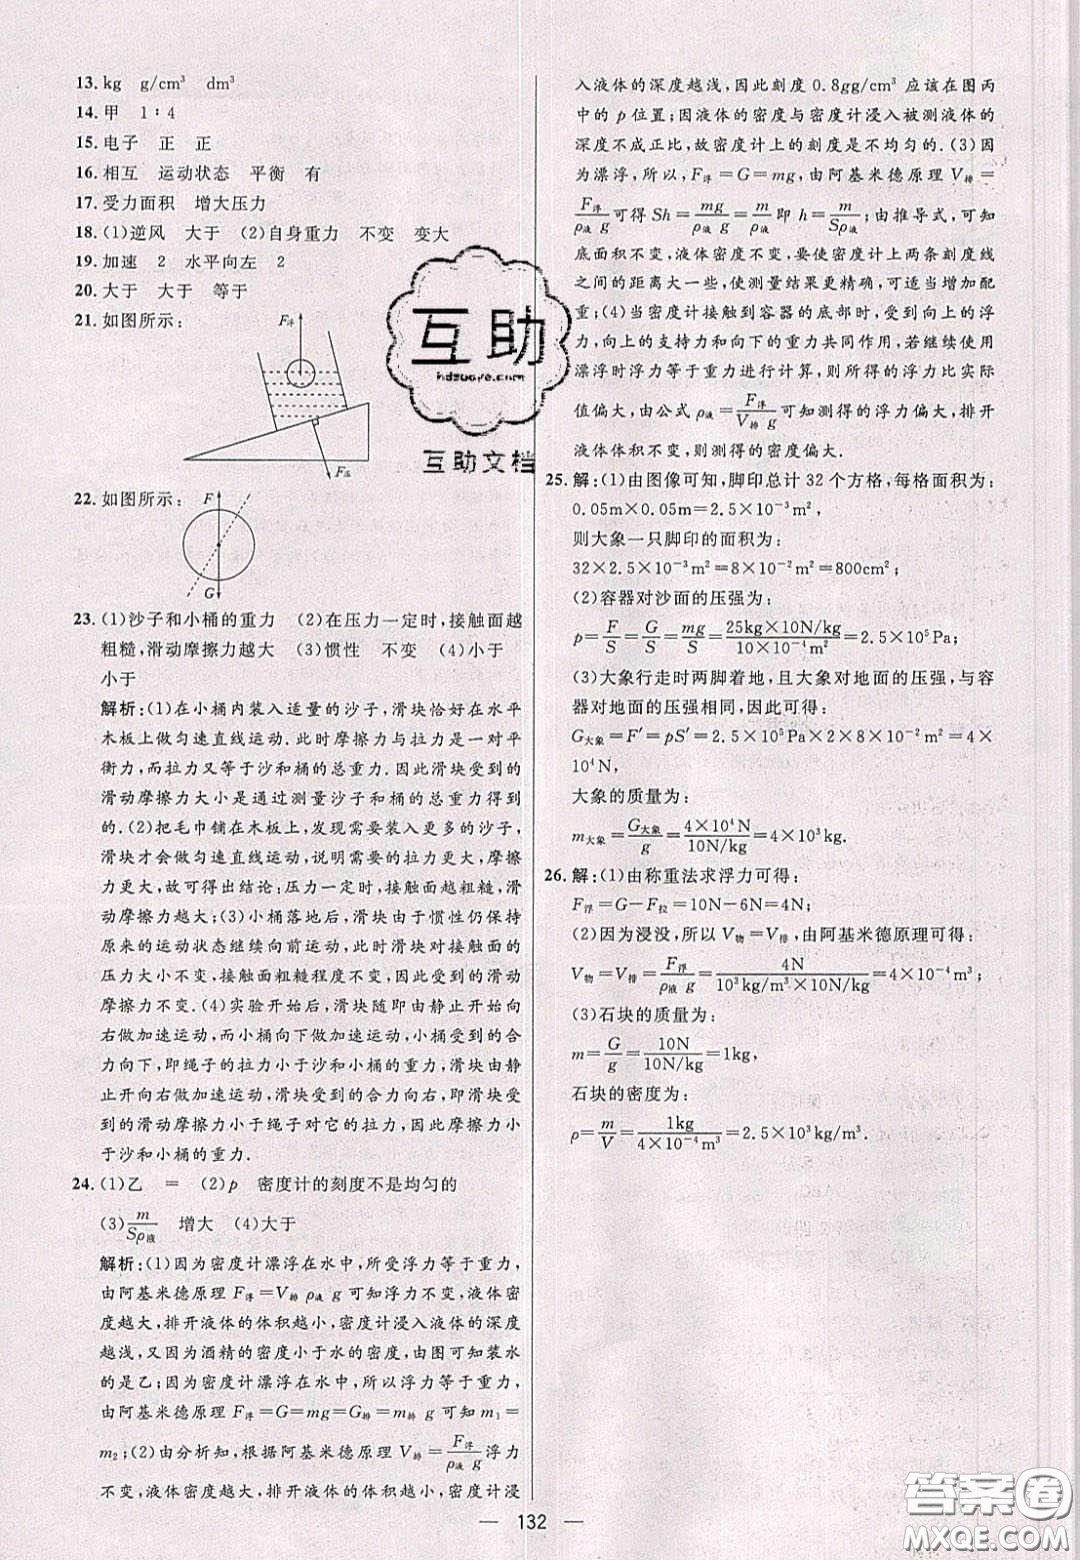 13. kg　g/cm³　dm³
14. 甲　1∶4
15. 电子　正　正
16. 相互　运动状态　平衡　有
17. 受力面积　增大压力
18. (1)逆风　大于　(2)自身重力　不变　变大
19. 加速　2　水平向左　2
20. 大于　大于　等于
21. 如图所示：
F浮
F压
22. 如图所示：
F
G
23. (1)沙子和小桶的重力　(2)在压力一定时,接触面越
粗糙,滑动摩擦力越大　(3)惯性　不变　(4)小于
小于
解析:(1)在小桶内装入适量的沙子,滑块恰好在水平
木板上做匀速直线运动. 此时摩擦力与拉力是一对平
衡力,而拉力又等于沙和桶的总重力. 因此滑块受到的
滑动摩擦力大小是通过测量沙子和桶的总重力得到
的. (2)把毛巾铺在木板上,发现需要装入更多的沙子,
滑块才会做匀速直线运动,说明需要的拉力更大,摩擦
力更大,故可得出结论;压力一定时,接触面越粗糙,滑
动摩擦力越大;(3)小桶落地后,滑块由于惯性仍保持
原来的运动状态继续向前运动,此时滑块对接触面的
压力大小不变,接触面粗糙程度不变,受到的滑动
摩擦力不变. (4)实验开始后,滑块随即由静止开始向
右做加速运动,而小桶向下做加速运动,小桶受到的合
力向下,即绳子的拉力小于沙和桶的重力. 滑块由静
止开向右做加速运动,滑块受到的合力向右,即滑块受
到的滑动摩擦力小于绳子对它的拉力,因此摩擦力小
于沙和小桶的重力.
24. (1)乙　=　(2)p　密度计的刻度不是均匀的
(3)m/Sρ液　增大　(4)大于
解析:(1)因为密度计漂浮在水中,所受浮力等于重力,
由阿基米德原理 F浮=V排 ρ液 g 可知浮力不变,液体密
度越大,排开液体的体积越小,密度计浸入液体的深度
越浅,又因为酒精的密度小于水的密度,由图可知装水
的是乙;因为密度计漂浮在水中,所以浮力等于重力,
由阿基米德原理 F浮=G=mg=G排=m排 g 可知 m1=
m2;(2)由分析知,根据阿基米德原理 V排=F浮/ρ液 g 浮力
不变,液体密度越大,排开液体的体积越小,密度计浸
入液体的深度越浅,因此刻度 0.8gg/cm³ 应该在图丙
中的 p 位置;因液体的密度与密度计浸入被测液体的
深度不成正比,故密度计上的刻度是不均匀的. (3)因
为漂浮,所以,F浮=G=mg,由阿基米德原理 V排=
F浮/ρ液 g 可得 Sh=mg/ρ液 g=m/ρ液 即 h=m/Sρ液;由推导式,可知
底面积不变,液体密度不变,要使密度计上两条刻度线
之间的距离大一些,使测量结果更精确,可适当增加配
重;(4)当密度计接触到容器的底部时,受到向上的浮
力,向上的支持力和向下的重力共同作用,若继续使用
漂浮时浮力等于重力进行计算,则所得的浮力比实际
值偏大,由公式 ρ液=F浮/V排 g 可知测得的浮力偏大,排开
液体体积不变,则测得的密度偏大.
25. 解:(1)由图像可知,脚印总计 32 个方格,每格面积为:
0.05m×0.05m=2.5×10⁻³m²,
则大象一只脚印的面积为:
32×2.5×10⁻³m²=8×10⁻²m²=800cm²;
(2)容器对沙面的压强为:
p=F/S=G/S=mg/S=25kg×10N/kg/10×10⁻⁴m²=2.5×10⁵Pa;
(3)大象行走时两脚着地,且大象对地面的压强与容
器对地面的压强相同,因此可得:
G大象=F′=pS′=2.5×10⁵Pa×2×8×10⁻²m²=4×
10⁴N,
大象的质量为:
m大象=G大象/g=4×10⁴N/10N/kg=4×10³kg.
26. 解:(1)由称重法求浮力可得:
F浮=G−F拉=10N−6N=4N;
(2)因为浸没,所以 V物=V排,由阿基米德原理可得:
V物=V排=F浮/ρ液 g=4N/10³kg/m³×10N/kg=4×10⁻⁴m³;
(3)石块的质量为:
m=G/g=10N/10N/kg=1kg,
石块的密度为:
ρ=m/V=1kg/4×10⁻⁴m³=2.5×10³kg/m³.
互助
hdzuoye.com
互助文档
— 132 —
答案圈
MXQE.COM